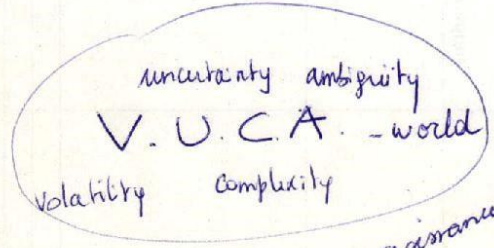 uncertainty ambiguity
V. U. C. A. - world
volatility complexity